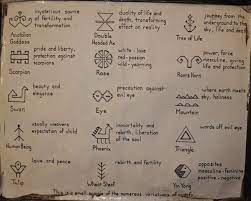 mysterious source
of fertility and
transformation
Anatolian
Goddess
duality of life and
death, transforming
effect on reality
Double
Headed Ax
journey from the
underground to the
sky, life and death
Tree of Life
pride and liberty,
protection against
scorpions
Scorpion
white - love
red - passion
wild - yearning
Rose
power, force,
Rams Horn
beauty and
elegance
Swan
precaution against
evil eye
Eye
where earth meets sky,
holiness
Mountain
usually answers
expectation of child
Human Being
immortality and
rebirth, liberation
of the soul
Phoenix
wards off evil eye
Triangle
love and peace
Tulip
rebirth and fertility
Wheat Sheaf
opposites
masculine - feminine
positive - negative
Yin Yang
This is a small sample of the numerous variations of motifs